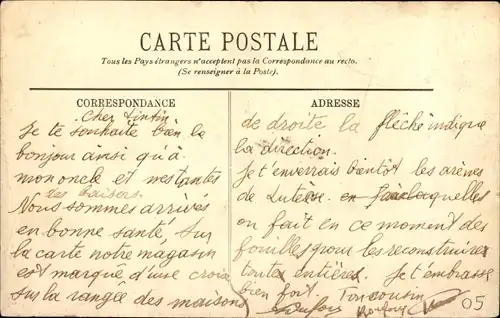 CARTE POSTALE
Tous les Pays étrangers n'acceptent pas la Correspondance au recto.
(Se renseigner à la Poste).
CORRESPONDANCE
Cher Tintin
Je te souhaite bien le
bonjour ainsi qu'à
mon oncle et mes tantes
des baisers
Nous sommes arrivés
en bonne santé, sur
la carte notre magasin
est marqué d'une croix
sur la rangée des maisons
ADRESSE
de droite la flèche indique
la direction.
Je t'enverrais bientôt les arènes
de Lutèce. en laquelles
on fait en ce moment des
fouilles pour les reconstruire
toutes entières. Je t'embrasse
bien fort. Ton cousin
05